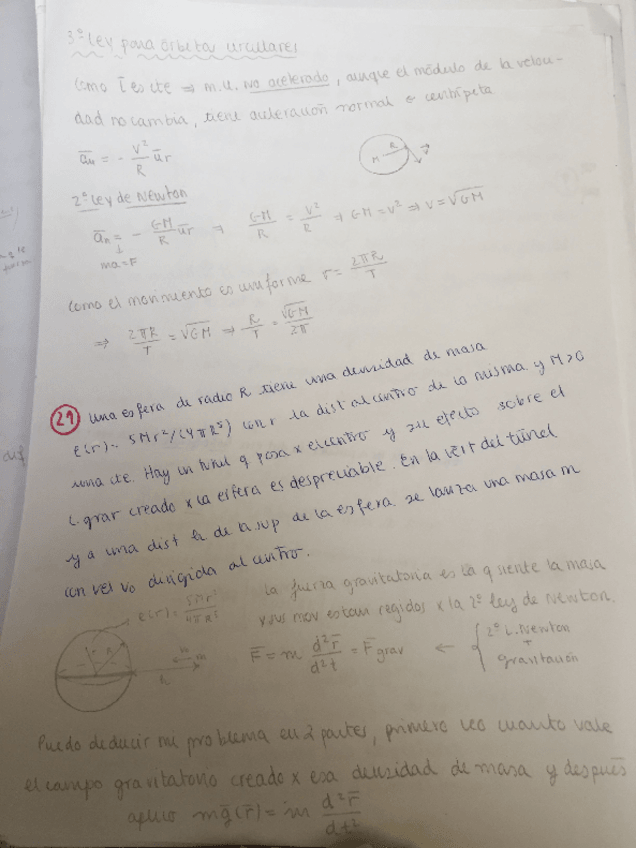 3º Ley para órbitas circulares
Como L es cte ⇒ m.u. no acelerado, aunque el módulo de la veloci-
dad no cambia, tiene aceleración normal o centrípeta
a̅n = - V²/R u̅r
M R v̅
2º Ley de Newton
a̅n = - GM/R u̅r ⇒ GM/R = V²/R ⇒ GM = V² ⇒ V = √GM
ma=F
Como el movimiento es uniforme v = 2πR/T
⇒ 2πR/T = √GM ⇒ R/T = √GM/2π
29 Una esfera de radio R tiene una densidad de masa
ρ(r) = 5Mr²/(4πR⁵) con r la dist al centro de la misma y M>0
una cte. Hay un túnel q pasa x el centro y su efecto sobre el
c. grav creado x la esfera es despreciable. En la vert del túnel
y a una dist h de la sup de la esfera se lanza una masa m
con vel v₀ dirigida al centro.
ρ(r) = 5Mr²/4πR⁵
r R m h
La fuerza gravitatoria es la q siente la masa
y sus mov estan regidos x la 2º ley de Newton.
F̅ = m d²r̅/d²t = F̅grav ← { 2º L. Newton
gravitación
Puedo deducir mi problema en 2 partes, primero veo cuanto vale
el campo gravitatorio creado x esa densidad de masa y después
aplico mg̅(r̅) = m d²r̅/dt²